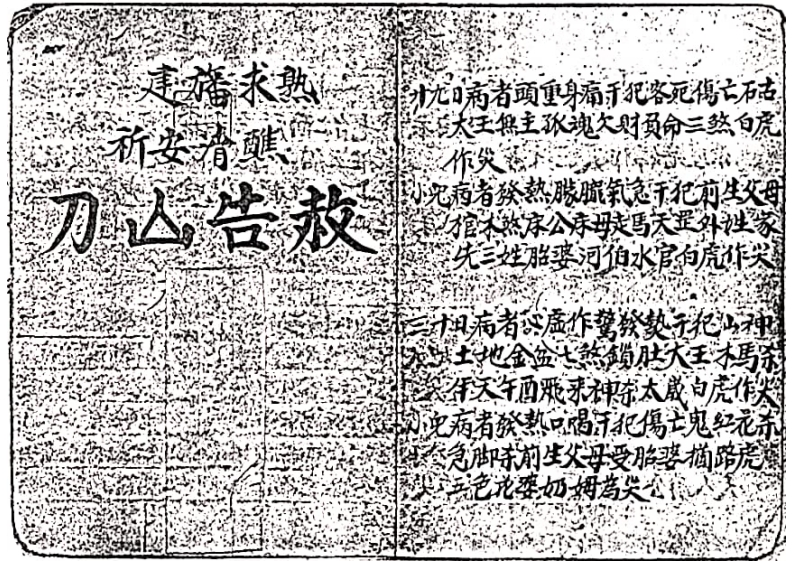 建旛求熟
祈安清醮
刀山告赦
廿九日病者頭重身痛干犯客死傷亡石古
大王無主孤魂欠财負命三煞白虎
作災
小兒病者發熱朦朧氣急干犯前生父母
棺木煞床公床母走馬天罡外姓家
先三姓胎婆河伯水官白虎作災
三十日病者心虛作驚發熱干犯山神
土地金盆七煞鎖肚大王木馬杀
天午酉飛來神杀太歲白虎作災
小兒病者發熱口喝干犯傷亡鬼紅花杀
急脚杀前生父母受胎婆摘路虎
五色花婆奶姆為災